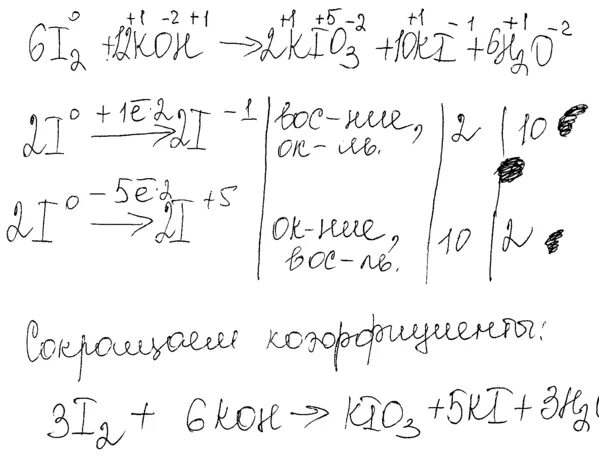 0 +1 -2 +1 +1 +5 -2 +1 -1 +1 -2
6I₂ + 12KOH → 2KIO₃ + 10KI + 6H₂O
2I⁰ + 1ē·2 → 2I⁻¹ | вос-ние, ок-ль. | 2 | 10
2I⁰ - 5ē·2 → 2I⁺⁵ | ок-ние, вос-ль. | 10 | 2
Сокращаем коэффициенты:
3I₂ + 6KOH → KIO₃ + 5KI + 3H₂O